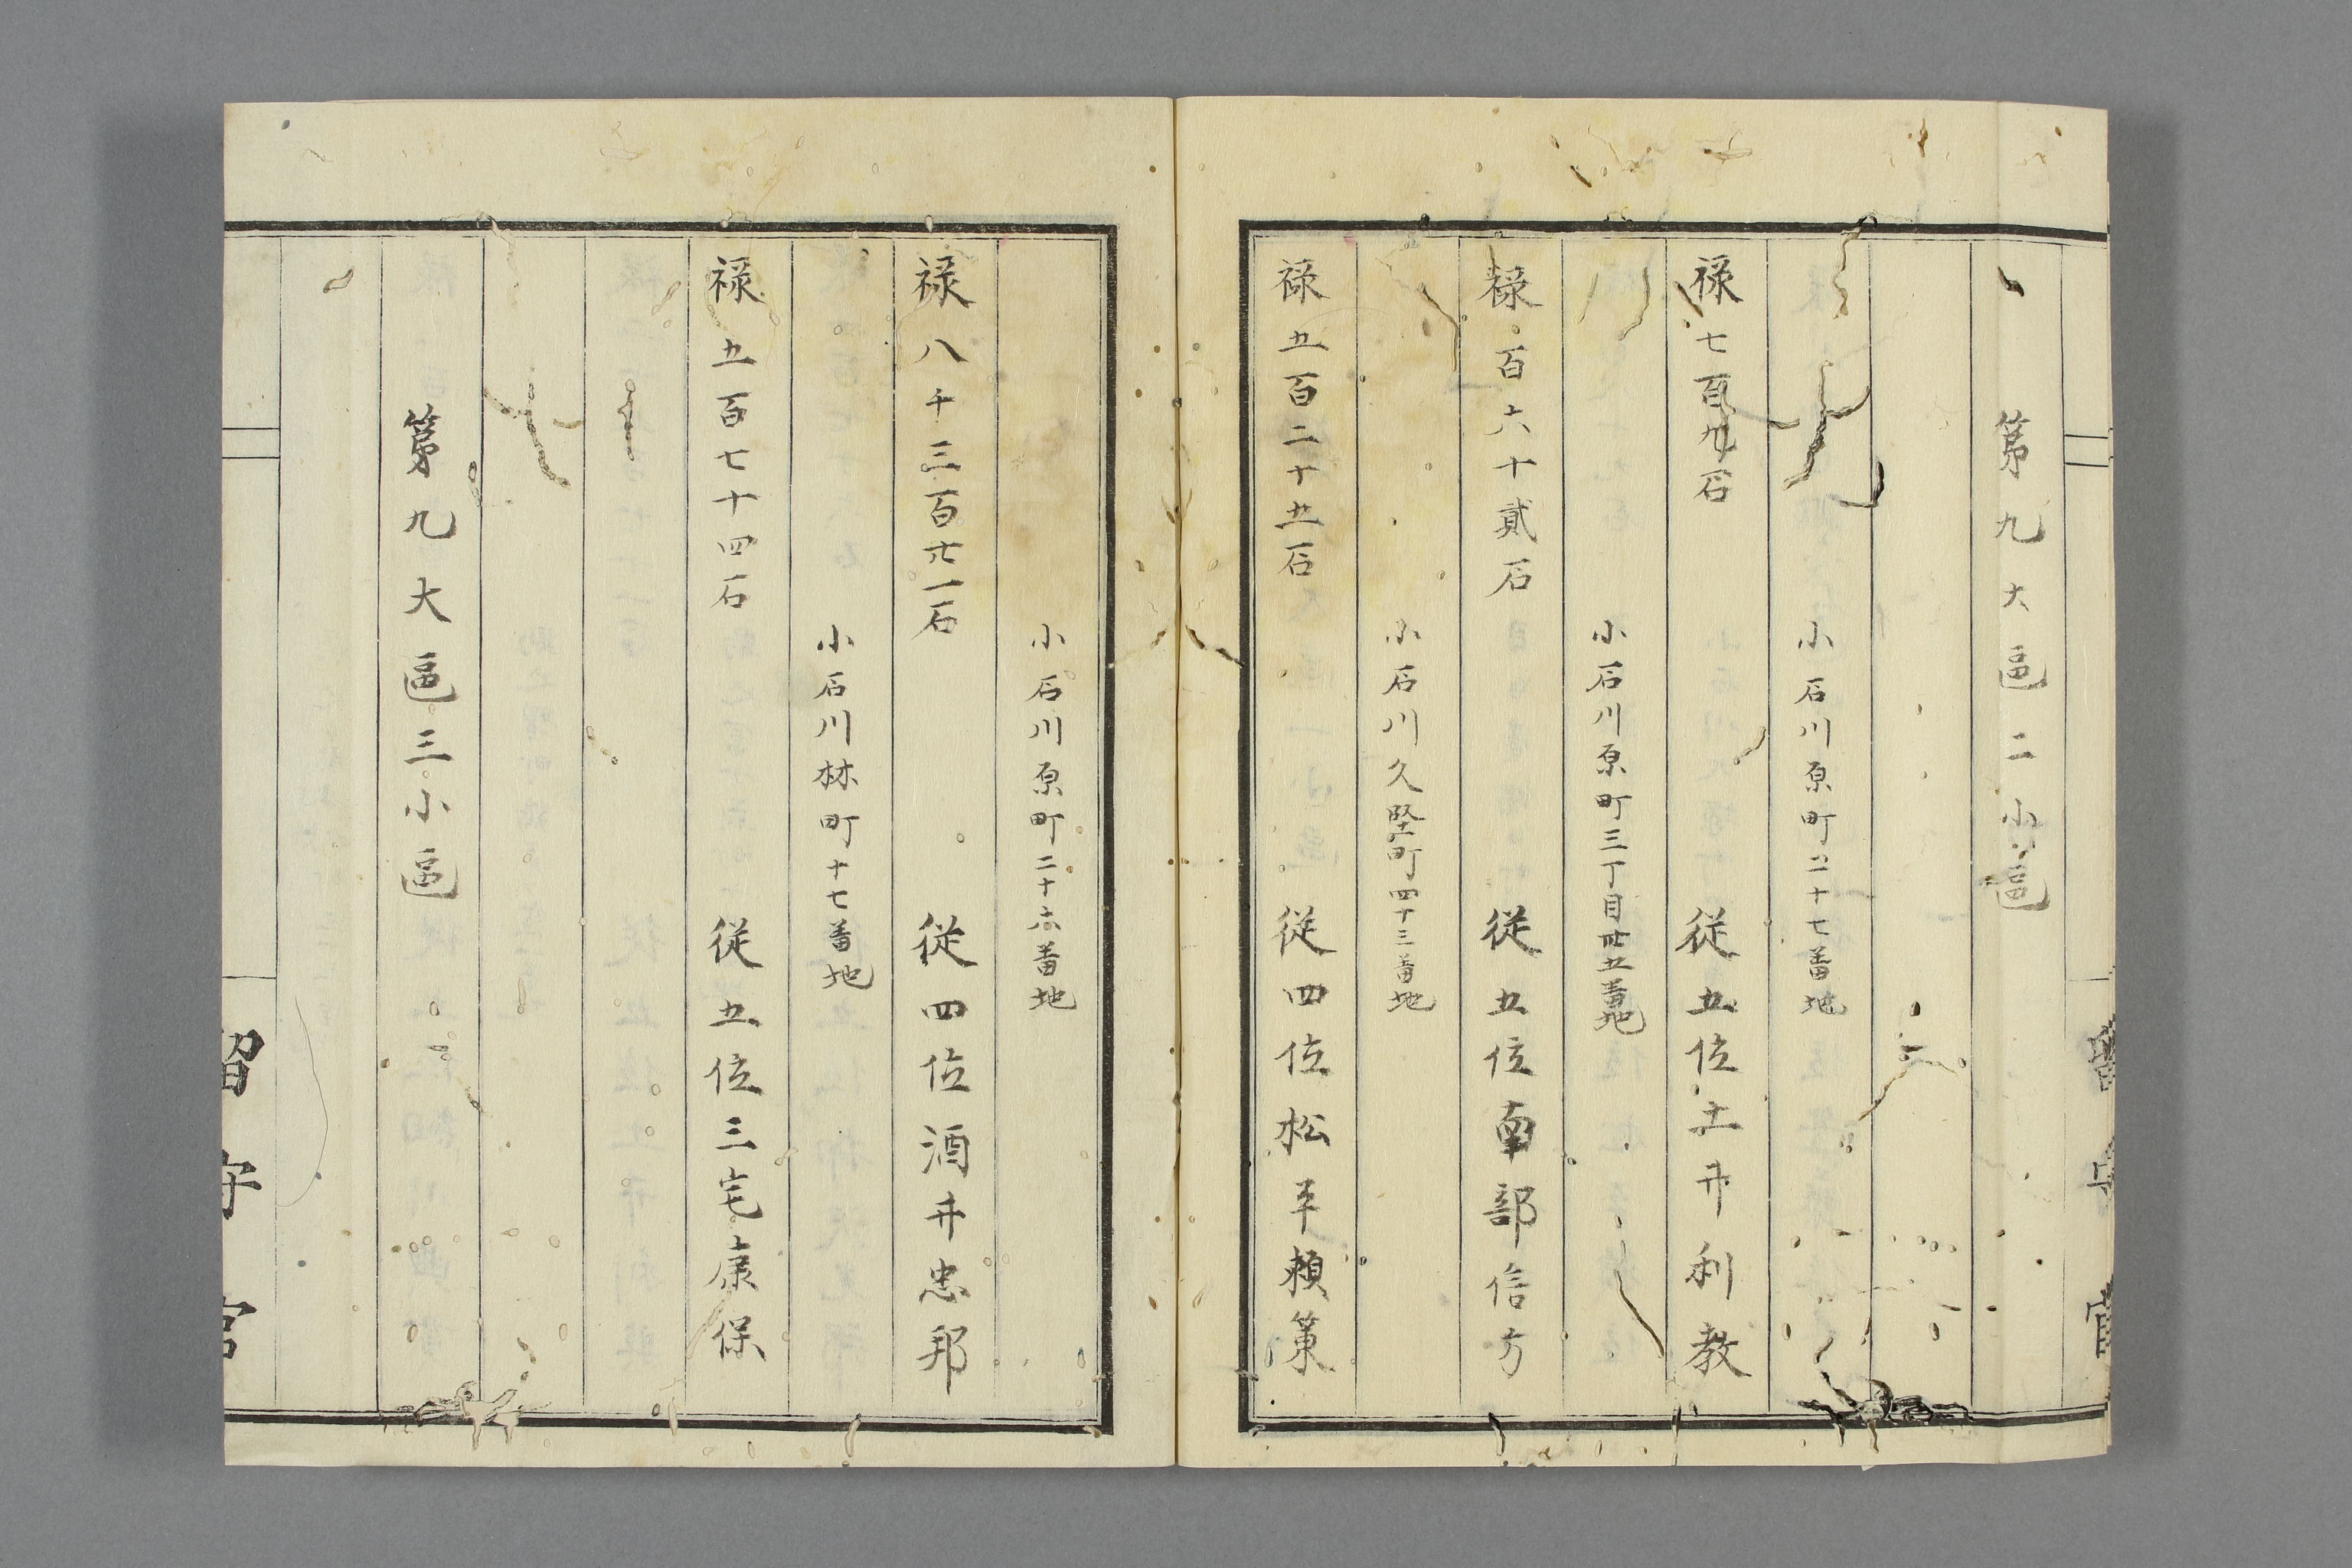 第九大區二小區
小石川原町二十七番地
禄七百九石
従五位土井利教
小石川原町三丁目廿五番地
禄百六十貳石
従五位南部信方
小石川久堅町四十三番地
禄五百二十五石
従四位松平頼策
小石川原町二十六番地
禄八千三百廿一石
従四位酒井忠邦
小石川林町十七番地
禄五百七十四石
従五位三宅康保
第九大區三小區
留守官